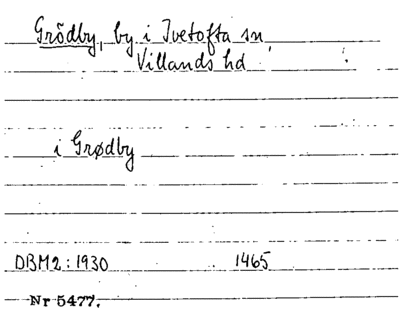 Grödby, by i Ivetofta sn,
Villands hd
i Grødby
DBM2: 1930 1465
Nr 5477.